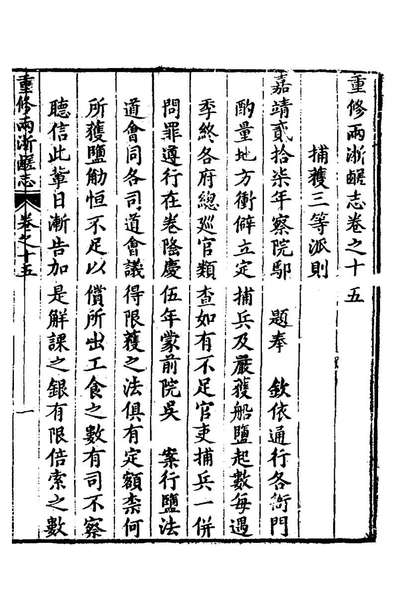 重修兩浙鹺志卷之十五
捕獲三等派則
嘉靖貳拾柒年察院鄢　題奉　欽依通行各衙門
酌量地方衝僻立定捕兵及嚴獲船鹽起數每遇
季終各府總巡官類查如有不足官吏捕兵一併
問罪遵行在卷隆慶伍年蒙前院吳　案行鹽法
道會同各司道會議得限獲之法俱有定額柰何
所獲鹽觔恒不足以償所出工食之數有司不察
聽信此軰日漸告加是解課之銀有限倍索之數
重修兩浙鹺志　卷之十五　一